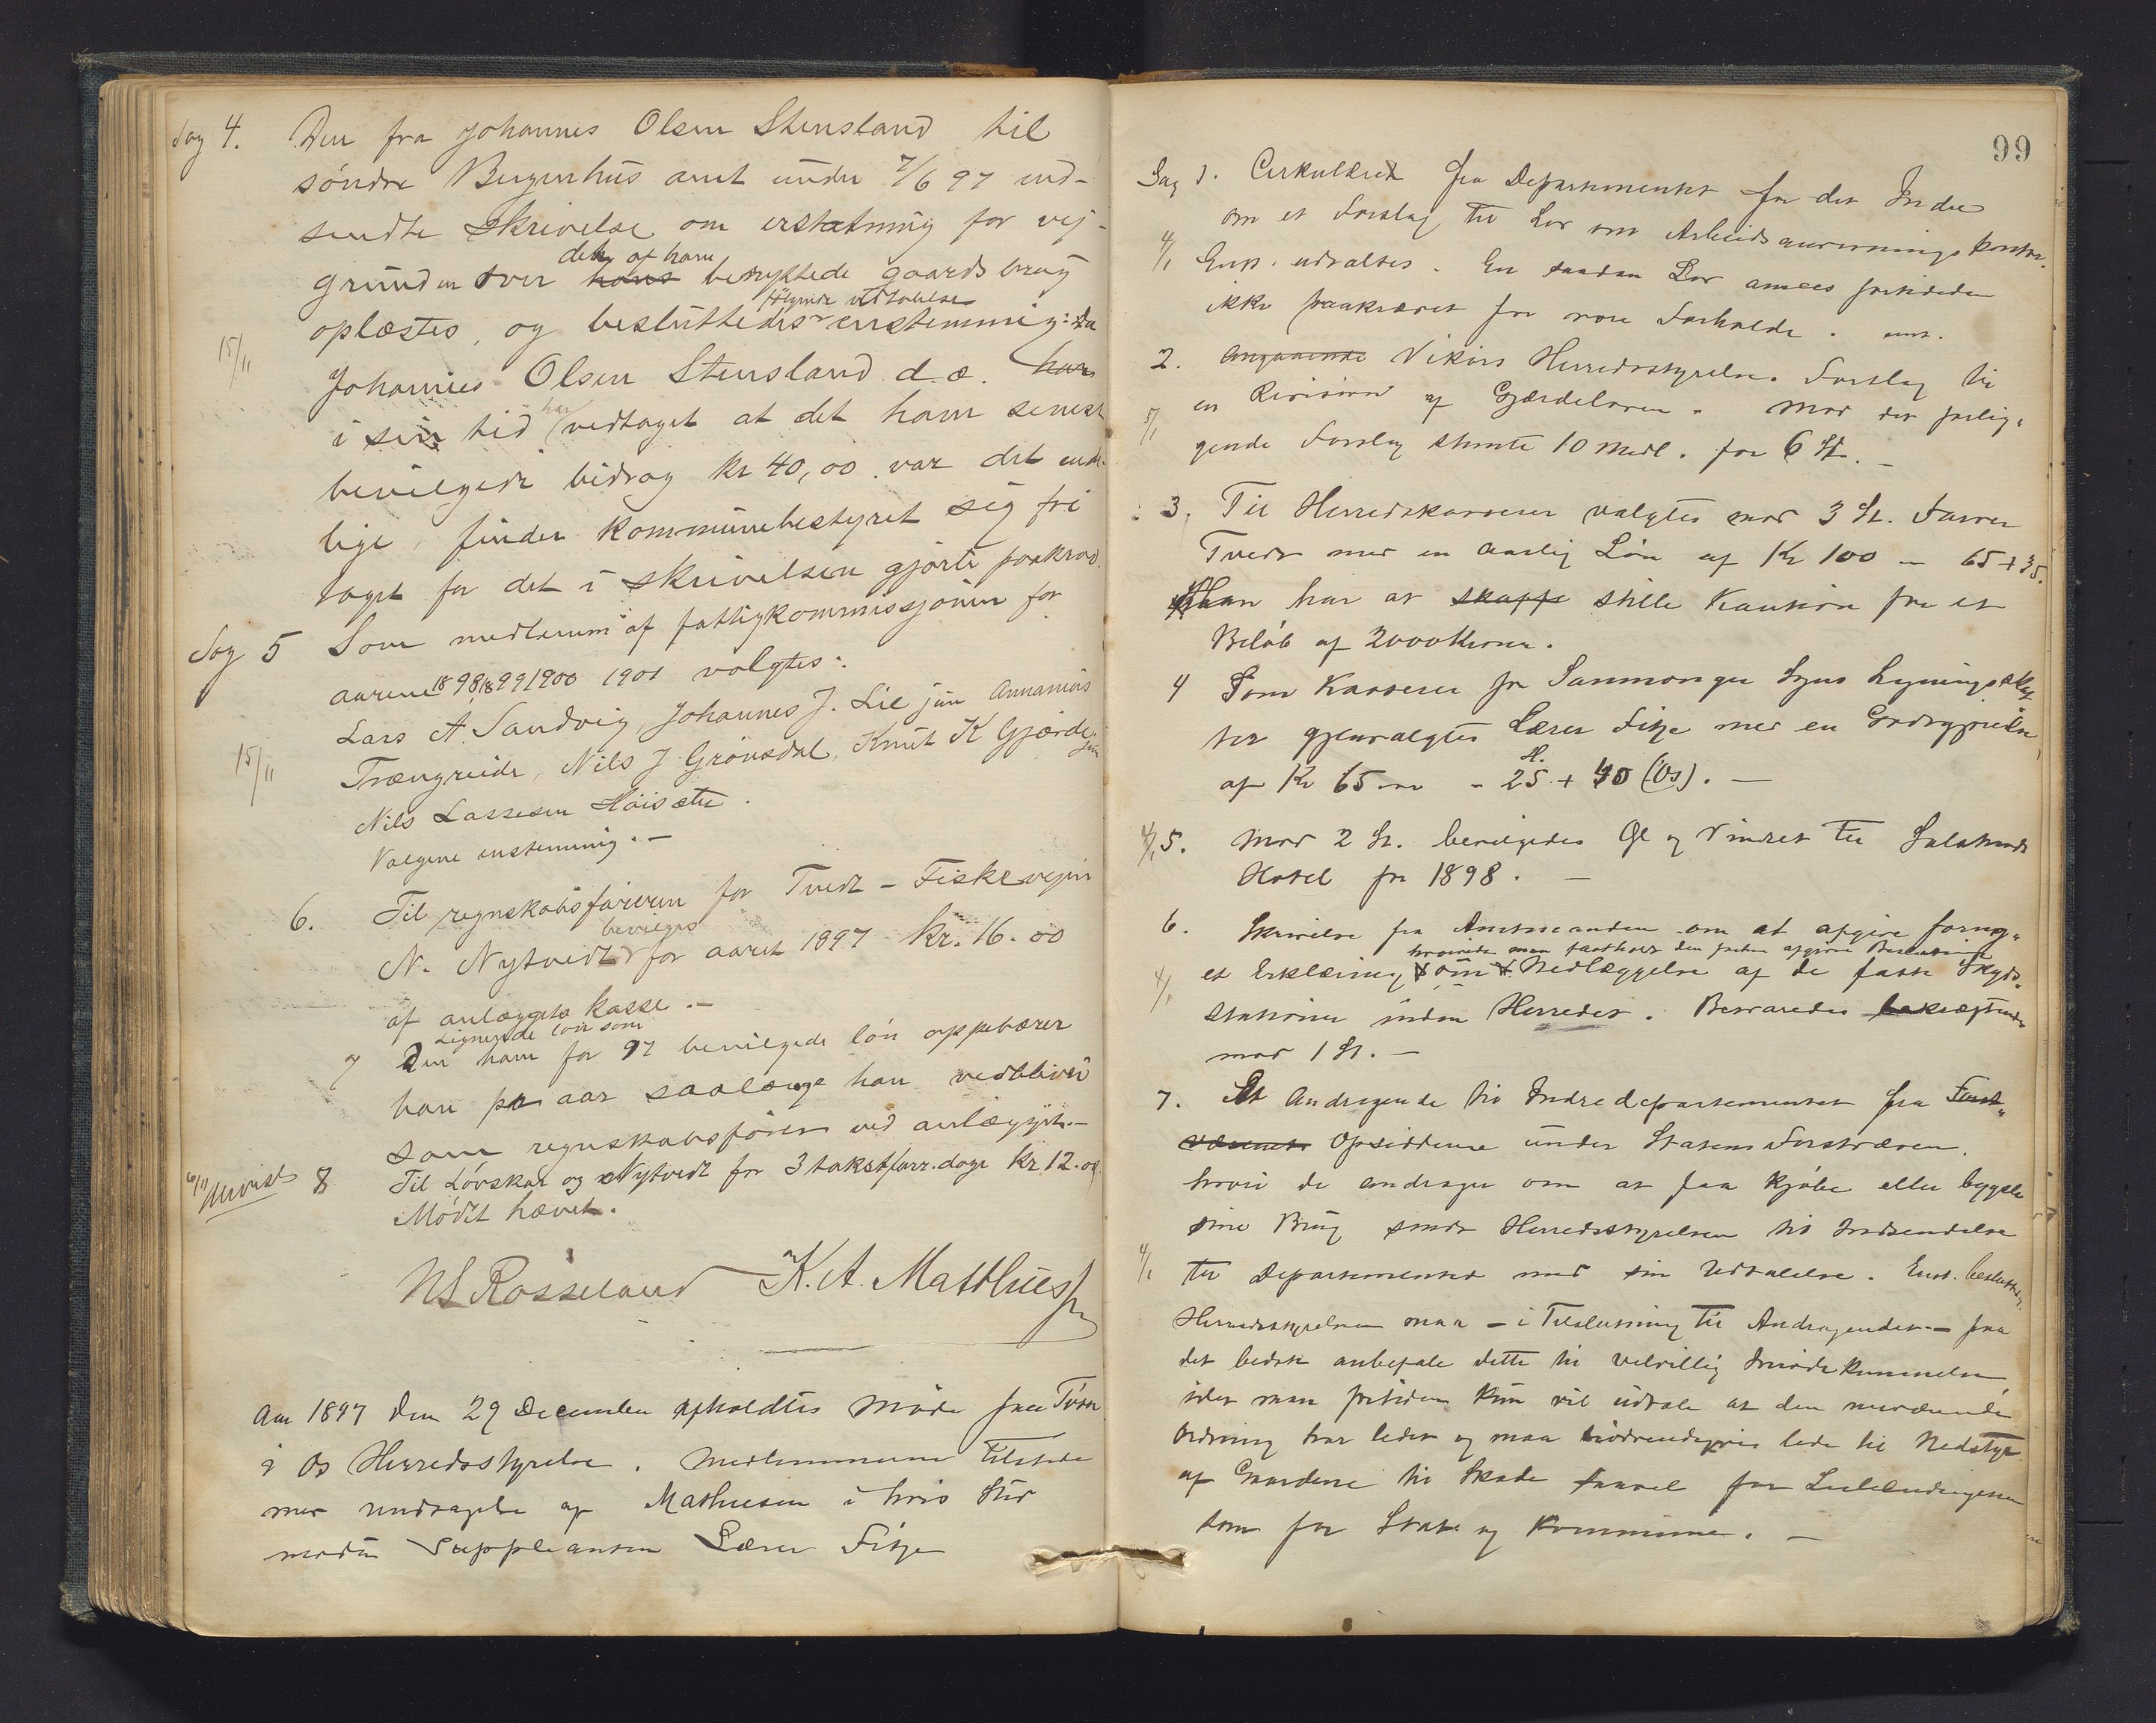 Sag 4. Den fra Johannes Olsen Stensland til
søndre Bergenhus amt under 7/6 97 ind-
sendte skrivelse om erstatning for vej-
det af ham
grunden over hans benyttede gaardsbrug
følgende udtalelse
oplæstes, og besluttedes enstemmig: Da
15/11
Johannes Olsen Stensland d.æ. har
i sin tid har vedtaget at det ham senest
bevilgede bidrag kr 40,00 var det ende-
lige, finder kommunebestyret sig fri
taget for det i skrivelsen gjorte paakrav.
Sag 5 Som medlemmer af fattigkommissjonen for
aarene 1898 1899 1900 1901 valgtes:
Lars A. Sandvig, Johannes J. Lie jun Annanias
15/11
Trængreide, Nils J Grønsdal, Knut K Gjærde jun
Nils Lassesen Høisæter.
Valgene enstemmig. —
6. Til regnskabsføreren for Tvedt - Fiskevejen
bevilges
N. Nytvedt for aaret 1897 kr. 16.00
af anlæggets kasse. —
Lignende løn som
7 Den ham for 97 bevilgede løn oppebærer
han pr aar saalænge han vedbliver
som regnskabsfører ved anlægget. —
6/11 Anvist 8 Til Løvskar og Nytvedt for 3 takstforr. dage kr 12.00
Mødet hævet.
NL Røsseland K. A. Mathiesen
Aar 1897 den 29 December afholdtes Møde paa Tøsse
i Os Herredsstyrelse. Medlemmerne tilstede
med undtagelse af Mathiesen i hvis Sted
mødte Suppleanten Lærer Fitje
99
Sag 1. Cirkulære fra Departementet for det Indre
om et Forslag til Lov om Arbeidsanvisningskontor.
4/1
Enst. udtaltes. En saadan Lov ansees fortiden
ikke paakrævet for vore Forholde. enst.
2. Angaaende Vikørs Herredsstyrelses Forslag til
en Revision af Gjærdeloven. Mod det forlig-
5/1
gende Forslag stemte 10 Medl. for 6 St. —
3. Til Herredskasserer valgtes mod 3 St. Farver
Tvedt med en aarlig Løn af Kr 100 — 65 + 35.
Han har at skaffe stille Kaution for et
Beløb af 2000 Kroner.
4 Som Kasserer for Samnanger Sogns Ligningsskat
ter gjenvalgtes Lærer Fitje med en Godtgjørelse
H.
af Kr 65 — 25 + 40 (Os). —
4/1 5. Mod 2 St. bevilgedes Øl og Vinret til Solstrands
Hotel for 1898. —
6. Skrivelse fra Amtmanden om at afgive fornyet
hvorved man fastholder den forhen afgivne Beslutning
et Erklæring om Nedlæggelse af de faste Skyds-
4/1
stationer inden Herredet. Besvaredes bekræftende
mod 1 St. —
7. Et Andragende til Indredepartementet fra Forst-
væsenets Opsiddere under Statens Forstvæsen,
hvori de andrager om at faa kjøbe eller bygsle
sine Brug sendt Herredsstyrelsen til Indsendelse
4/1
til Departementet med sin Udtalelse. Enst. besluttedes:
Herredsstyrelsen maa — i Tilslutning til Andragendet — paa
det bedste anbefale dette til velvillig Imødekommelse,
idet man fortiden kun vil udtale at den nuværende
Ordning har ledet og maa nødvendigvis lede til Nedstyr
af Gaardene til Skade saavel for Leilændingerne
som for Stat og Kommune. —